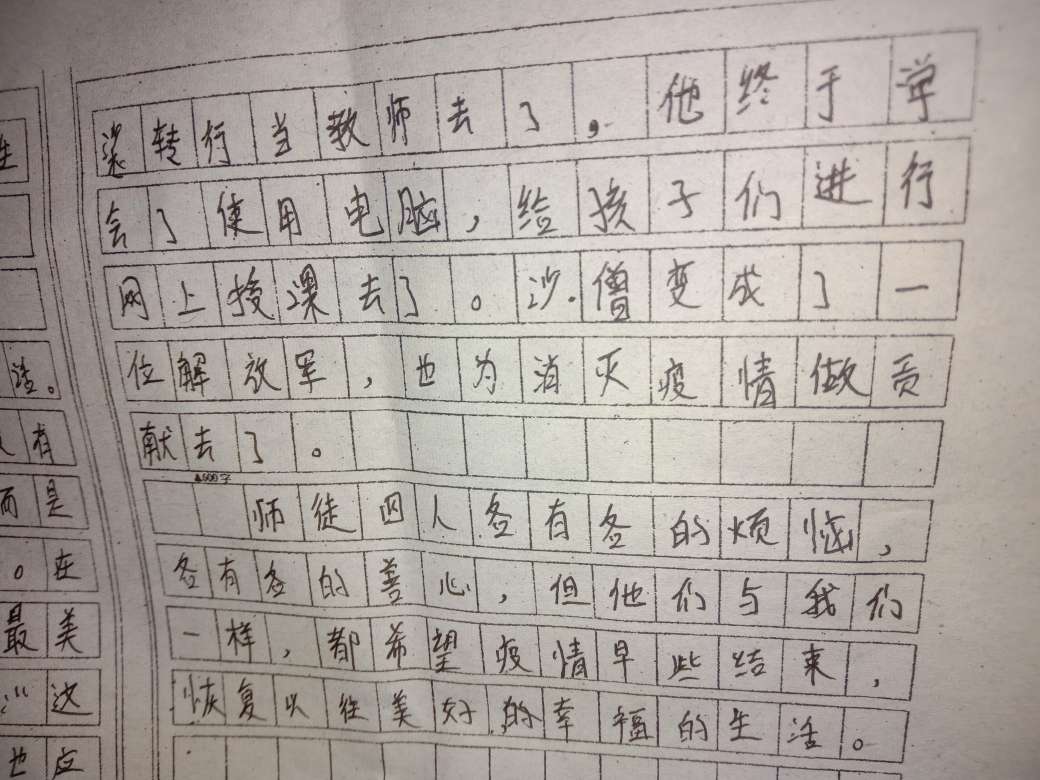 转行当教师去了，他终于学
会了使用电脑，给孩子们进行
网上授课去了。沙僧变成了一
位解放军，也为消灭疫情做贡
献去了。
▲600字
师徒四人各有各的烦恼，
各有各的善心，但他们与我们
一样，都希望疫情早些结束，
恢复以往美好的幸福的生活。
有
而是
。在
最美
这
也应